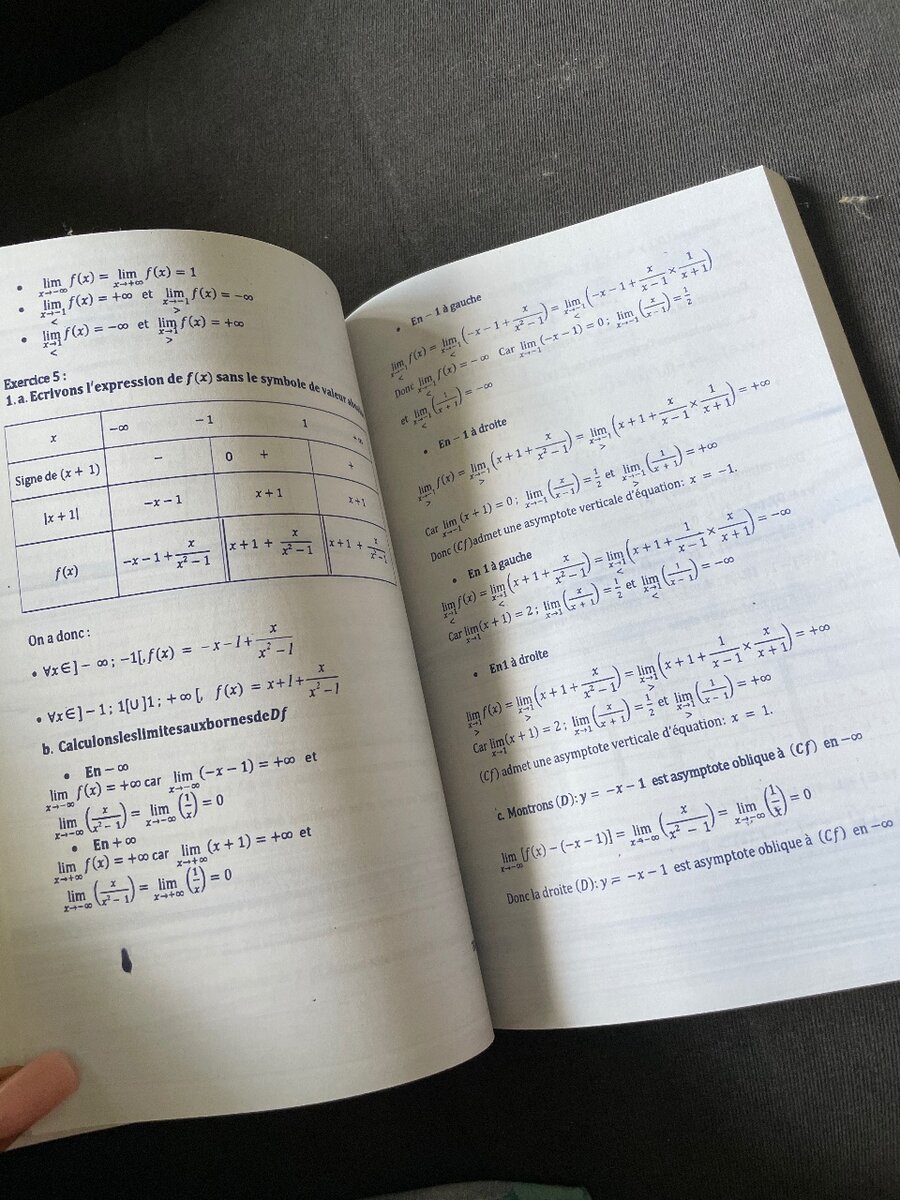 • lim x→−∞ f(x) = lim x→+∞ f(x) = 1
• lim x→−1 < f(x) = +∞ et lim x→−1 > f(x) = −∞
• lim x→1 < f(x) = −∞ et lim x→1 > f(x) = +∞
Exercice 5 :
1. a. Ecrivons l'expression de f(x) sans le symbole de valeur
x −∞ −1 1 +∞
Signe de (x + 1) − 0 + +
|x + 1| −x − 1 x + 1 x + 1
f(x) −x − 1 + x/(x² − 1) x + 1 + x/(x² − 1) x + 1 + x/(x² − 1)
On a donc :
• ∀x∈]− ∞ ; −1[, f(x) = −x − 1 + x/(x² − 1)
• ∀x∈]−1 ; 1[∪]1 ; +∞ [, f(x) = x+1+ x/(x² − 1)
b. CalculonsleslimitesauxbornesdeDf
• En −∞
lim x→−∞ f(x) = +∞ car lim x→−∞ (−x − 1) = +∞ et
lim x→−∞ (x/(x² − 1)) = lim x→−∞ (1/x) = 0
• En +∞
lim x→+∞ f(x) = +∞ car lim x→+∞ (x + 1) = +∞ et
lim x→−∞ (x/(x² − 1)) = lim x→−∞ (1/x) = 0
• En − 1 à gauche
lim x→−1 < f(x) = lim x→−1 < (−x − 1 + x/(x² − 1)) = lim x→−1 < (−x − 1 + x/(x − 1) × 1/(x + 1))
Donc lim x→−1 < f(x) = −∞ Car lim x→−1 (−x − 1) = 0 ; lim x→−1 (x/(x − 1)) = 1/2
et lim x→−1 < (1/(x + 1)) = −∞
• En − 1 à droite
lim x→−1 > f(x) = lim x→−1 > (x + 1 + x/(x² − 1)) = lim x→−1 > (x + 1 + x/(x − 1) × 1/(x + 1)) = +∞
Car lim x→−1 (x + 1) = 0 ; lim x→−1 (x/(x − 1)) = 1/2 et lim x→−1 > (1/(x + 1)) = +∞
Donc (Cf)admet une asymptote verticale d'équation: x = −1.
• En 1 à gauche
lim x→1 < f(x) = lim x→1 < (x + 1 + x/(x² − 1)) = lim x→1 < (x + 1 + 1/(x − 1) × x/(x + 1)) = −∞
Car lim x→1 (x + 1) = 2 ; lim x→1 (x/(x + 1)) = 1/2 et lim x→1 < (1/(x − 1)) = −∞
• En1 à droite
lim x→1 > f(x) = lim x→1 > (x + 1 + x/(x² − 1)) = lim x→1 > (x + 1 + 1/(x − 1) × x/(x + 1)) = +∞
Car lim x→1 (x + 1) = 2 ; lim x→1 (x/(x + 1)) = 1/2 et lim x→1 > (1/(x − 1)) = +∞
(Cf) admet une asymptote verticale d'équation: x = 1.
c. Montrons (D): y = −x − 1 est asymptote oblique à (Cf) en −∞
lim x→−∞ [f(x) − (−x − 1)] = lim x→−∞ (x/(x² − 1)) = lim x→−∞ (1/x) = 0
Donc la droite (D): y = −x − 1 est asymptote oblique à (Cf) en −∞